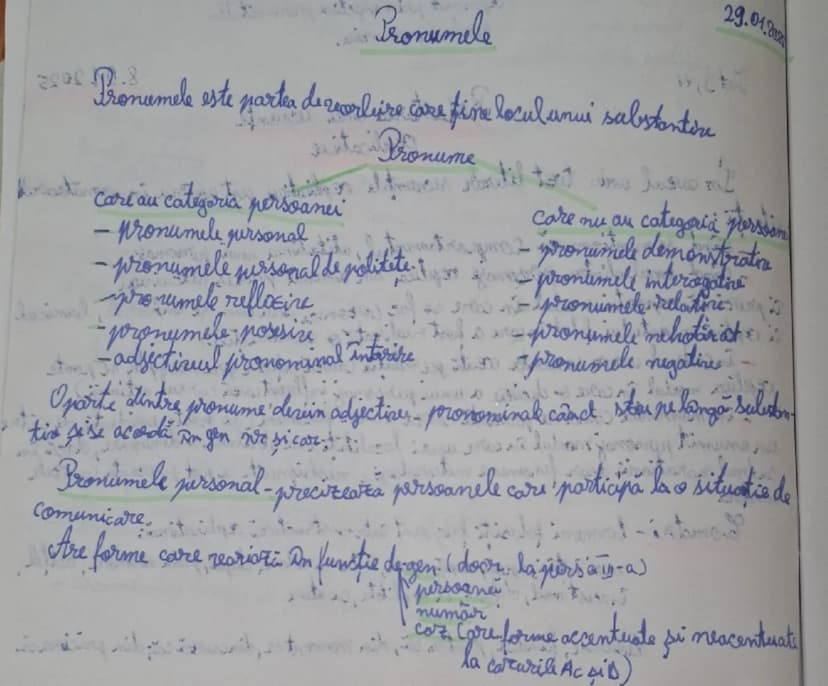 29.01.2025
Pronumele
Pronumele este partea de vorbire care ține locul unui substantiv
Pronume
care au categoria persoanei
- pronumele personal
- pronumele personal de politețe
- pronumele reflexive
- pronumele posesive
- adjectivul pronominal întărire
care nu au categoria persoanei
- pronumele demonstrative
- pronumele interogative
- pronumele relativ
- pronumele nehotărât
- pronumele negative
O parte dintre pronume devin adjective pronominale când stau pe lângă substan-
tiv și se acordă în gen nr și caz
Pronumele personal - precizează persoanele care participă la o situație de
comunicare.
Are forme care variază în funcție de gen (doar la pers a III-a)
persoană
număr
caz (are forme accentuate și neaccentuate
la cazurile Ac și D)